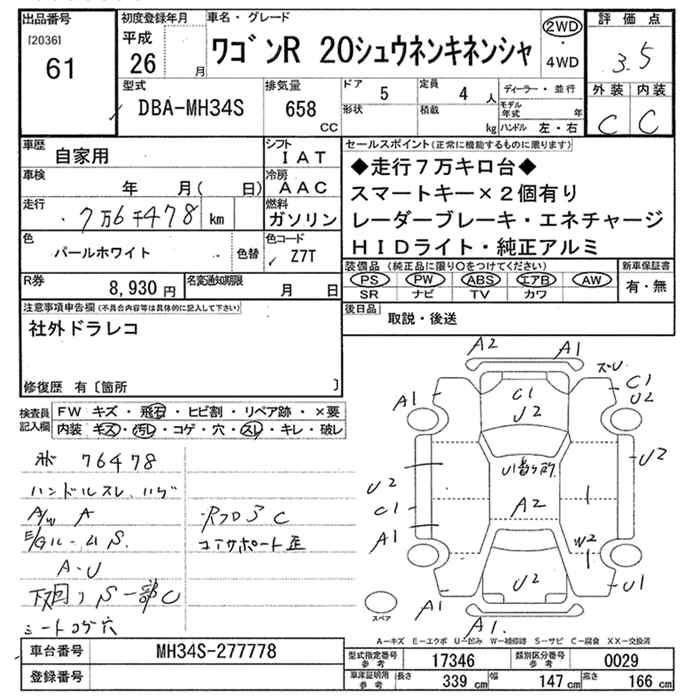 出品番号
[2036]
61
初度登録年月
平成
26 月
車名・グレード
ワゴンR 20シュウネンキネンシャ
2WD
・
4WD
評価点
3.5
外装 内装
C C
型式
DBA-MH34S
排気量
658
CC
ドア 5
形状
定員 4 人
積載 kg
ディーラー・並行
モデル年式 年
ハンドル 左・右
車歴
自家用
シフト
IAT
車検
年 月( 日)
冷房
AAC
走行
7万6千478 km
燃料
ガソリン
色
パールホワイト
色替
色コード
Z7T
R券
8,930円
名変通知期限
月 日
セールスポイント(正常に機能するものに限ります)
◆走行7万キロ台◆
スマートキー×2個有り
レーダーブレーキ・エネチャージ
HIDライト・純正アルミ
装備品 (純正品に限り○をつけてください)
PS PW ABS エアB AW
SR ナビ TV カワ
新車保証書
有・無
後日品
取説・後送
注意事項申告欄(不具合内容等は具体的に記入して下さい)
社外ドラレコ
修復歴 有〔箇所 〕
検査員記入欄
FW キズ・飛石・ヒビ割・リペア跡・×要
内装 キズ・汚レ・コゲ・穴・スレ・キレ・破レ
76478
ハンドルスレ、ハゲ
A/W A
E/Gルーム S
A・U
下回り S 一部C
シートコゲ穴
Rフロア C
コアサポート歪
A2 A1
C1
U2
A1
C1
U2
U2
U2
C1
A1
A2
W2
U2
U1
A1
A1
スペア
A―キズ E―エクボ U―凹み W―補修跡 S―サビ C―腐食 XX―交換済
車台番号
MH34S-277778
登録番号
型式指定番号
参考
17346
類別区分番号
参考
0029
車庫証明用
参考
長さ 339 cm
幅 147 cm
高さ 166 cm